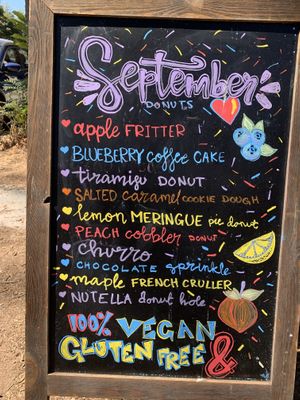 September
DONUTS
apple FRITTER
BLUEBERRY coffee CAKE
tiramisu DONUT
SALTED caramel COOKIE DOUGH
lemon MERINGUE pie donut
PEACH cobbler DONUT
churro
CHOCOLATE sprinkle
maple FRENCH CRULLER
NUTELLA donut hole
100% VEGAN
GLUTEN FREE &